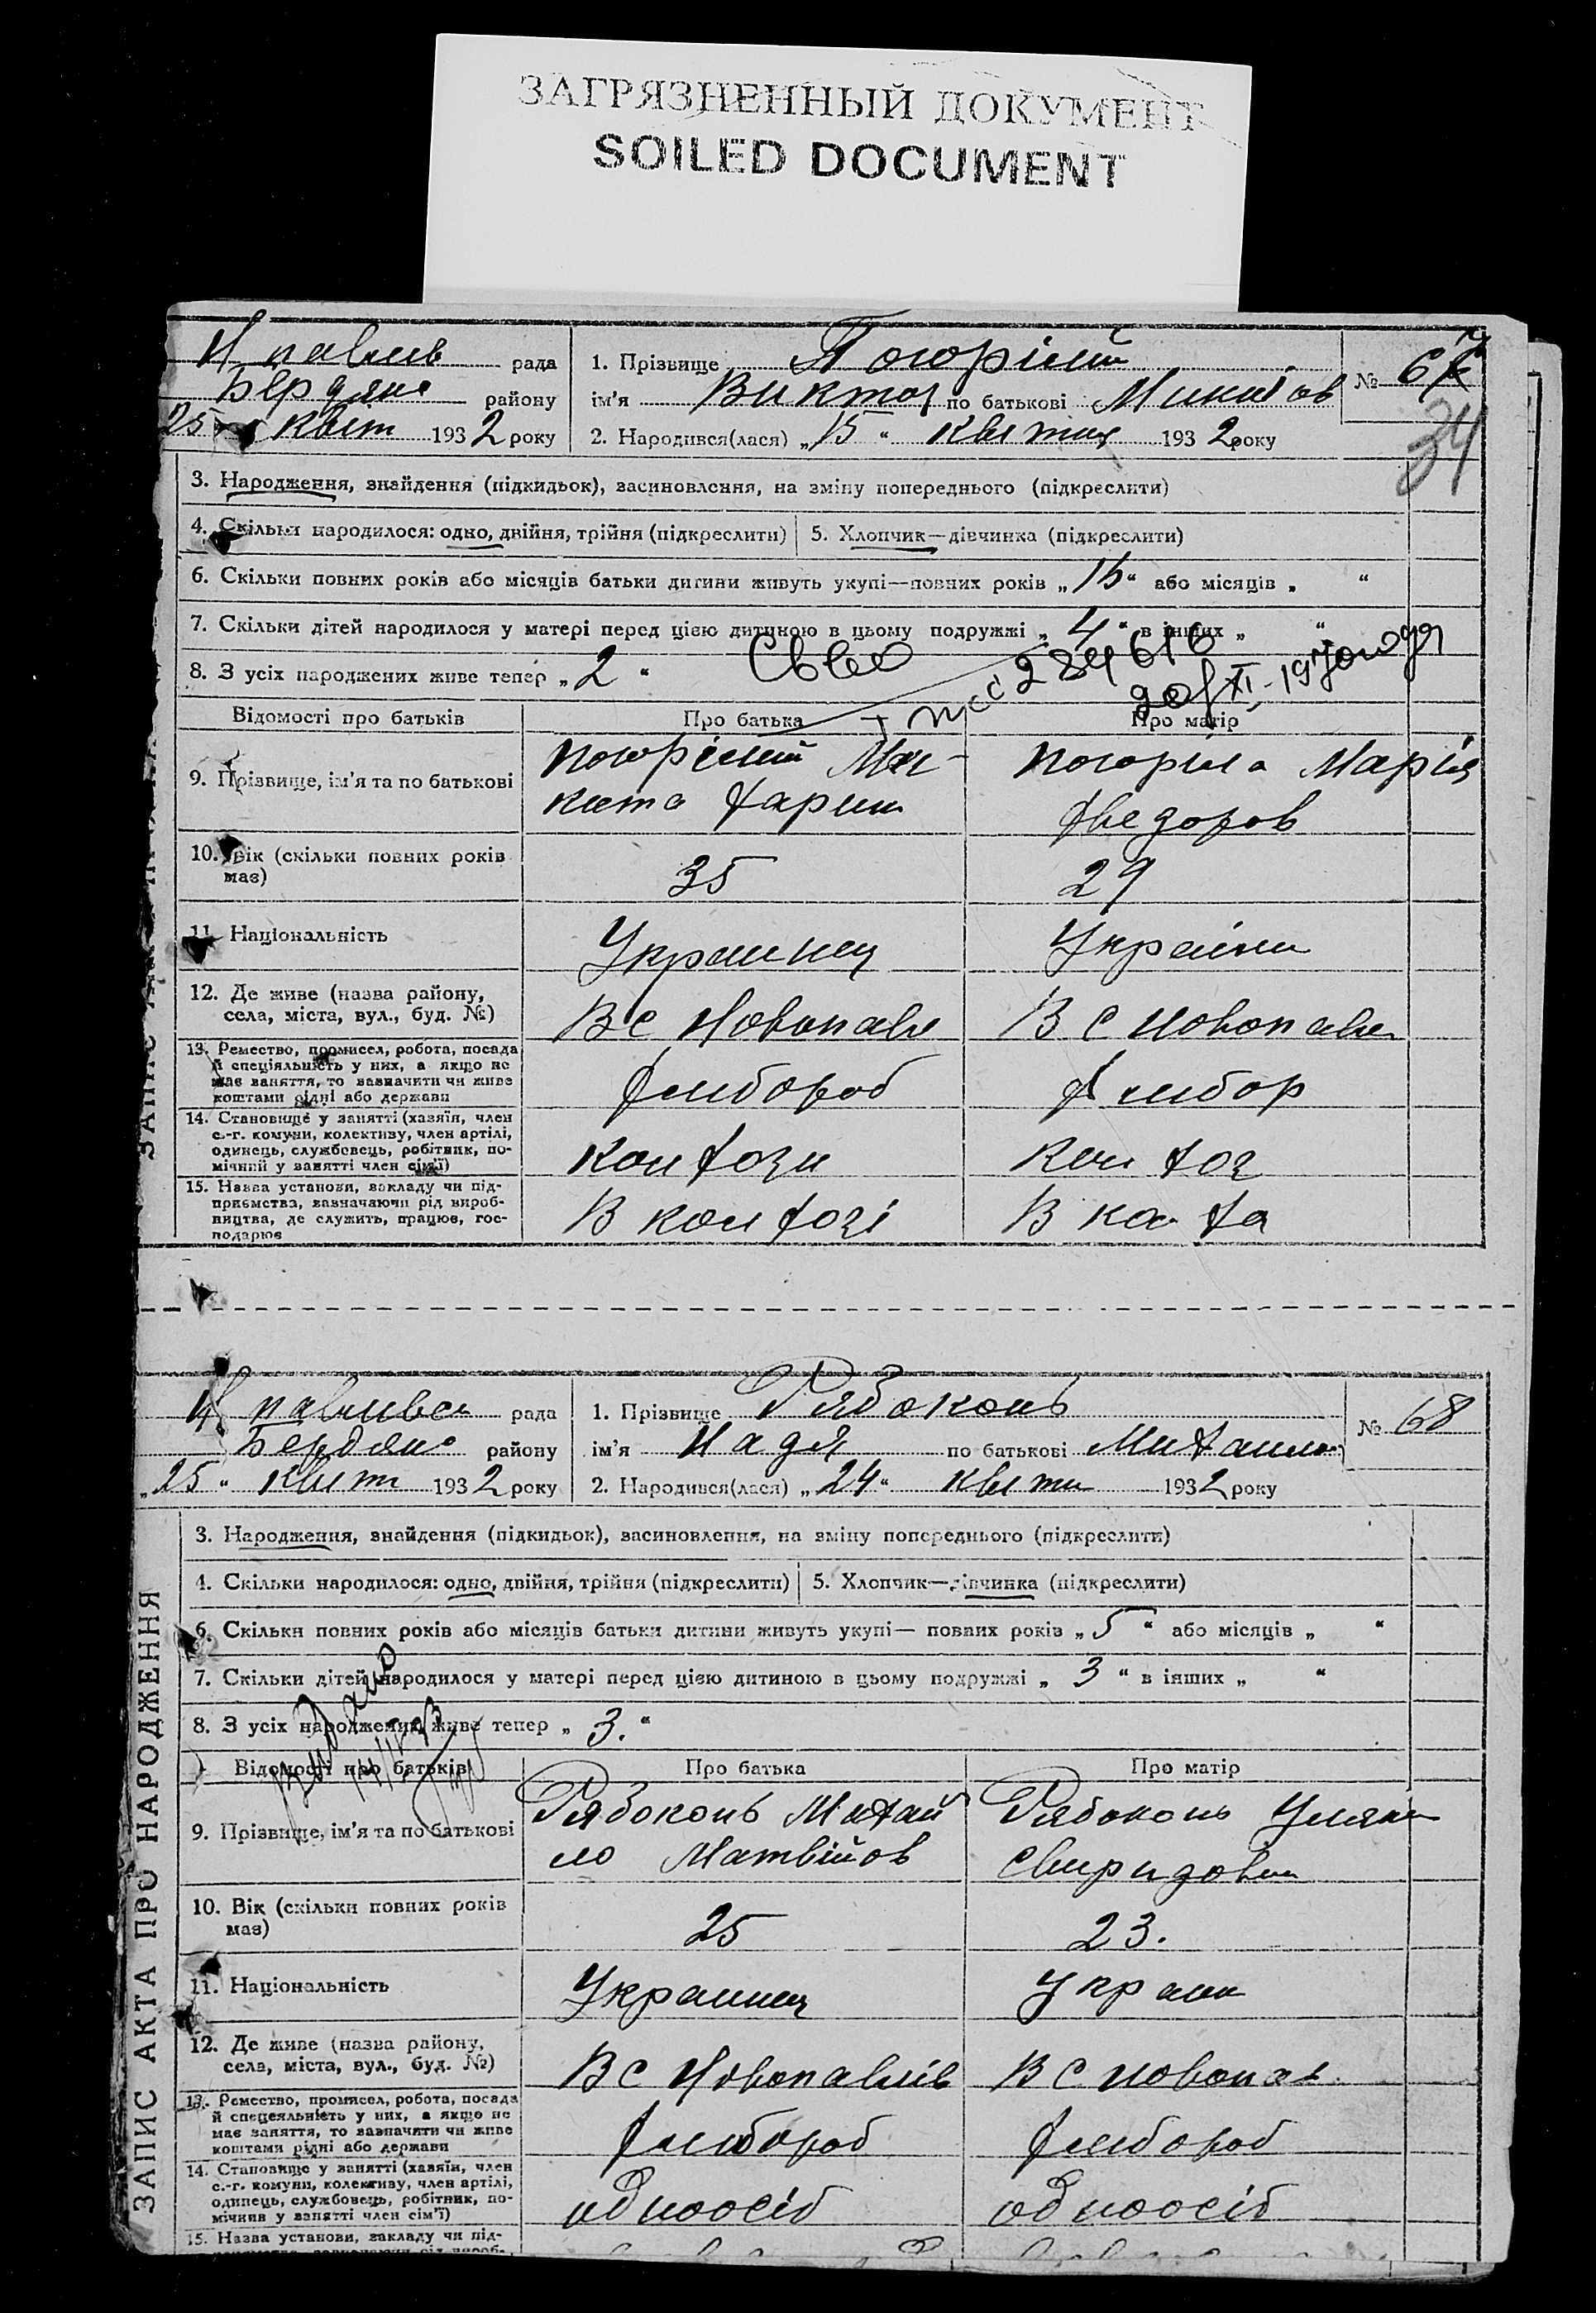 ЗАГРЯЗНЕННЫЙ ДОКУМЕНТ
SOILED DOCUMENT
Н павлів рада
Бердянс району
25 квіт 1932 року
1. Прізвище Погорілий
№ 67
ім'я Виктор по батькові Микитов
2. Народився(лася) „15“ квітня 1932 року
34
3. Народження, знайдення (підкидьок), засиновлення, на зміну попереднього (підкреслити)
4. Скільки народилося: одно, двійня, трійня (підкреслити) 5. Хлопчик—дівчинка (підкреслити)
6. Скільки повних років або місяців батьки дитини живуть укупі—повних років „15“ або місяців „ “
7. Скільки дітей народилося у матері перед цією дитиною в цьому подружжі „4“ в інших „ “
8. З усіх народжених живе тепер „2“
Відомості про батьків Про батька Про матір
9. Прізвище, ім'я та по батькові
Погорілий Ми-
кита Харит
Погоріла Марія
Хведоров
10. Вік (скільки повних років
має)
35 29
11. Національність Украинец Украінк
12. Де живе (назва району,
села, міста, вул., буд. №)
В с Новопавл В с Новопавл
13. Ремество, промисел, робота, посада
й спеціяльність у них, а якщо не
має заняття, то зазначити чи живе
коштами рідні або держави
Хлибороб Хлибор
14. Становище у занятті (хазяїн, член
с.-г. комуни, колективу, член артілі,
одинець, службовець, робітник, по-
мічний у занятті член сім'ї)
Колхозн Колхоз
15. Назва установи, закладу чи під-
приємства, зазначаючи рід вироб-
ництва, де служить, працює, гос-
подарює
В колхозі В колхо
Н павливс рада
Бердянс району
„25“ квит 1932 року
1. Прізвище Рябоконь
№ 68
ім'я Надя по батькові Михайлов
2. Народився(лася) „24“ квітн 1932 року
ЗАПИС АКТА ПРО НАРОДЖЕННЯ
3. Народження, знайдення (підкидьок), засиновлення, на зміну попереднього (підкреслити)
4. Скільки народилося: одно, двійня, трійня (підкреслити) 5. Хлопчик—дівчинка (підкреслити)
6. Скільки повних років або місяців батьки дитини живуть укупі— повних років „5“ або місяців „ “
7. Скільки дітей народилося у матері перед цією дитиною в цьому подружжі „3“ в інших „ “
8. З усіх народжених живе тепер „3.“
Видано
Відомості про батьків Про батька Про матір
9. Прізвище, ім'я та по батькові
Рябоконь Михай
ло Матвійов
Рябоконь Уляна
Свиридовн
10. Вік (скільки повних років
має)
25 23.
11. Національність Украинец Украин
12. Де живе (назва району,
села, міста, вул., буд. №)
В с Новопавлів В с Новопав
13. Ремество, промисел, робота, посада
й спецеяльність у них, а якщо не
має заняття, то зазначити чи живе
коштами рідні або держави
Хлибороб Хлибороб
14. Становище у занятті (хазяїн, член
с.-г. комуни, колективу, член артілі,
одинець, службовець, робітник, по-
мічник у занятті член сім'ї)
одноосіб одноосіб
15. Назва установи, закладу чи під-